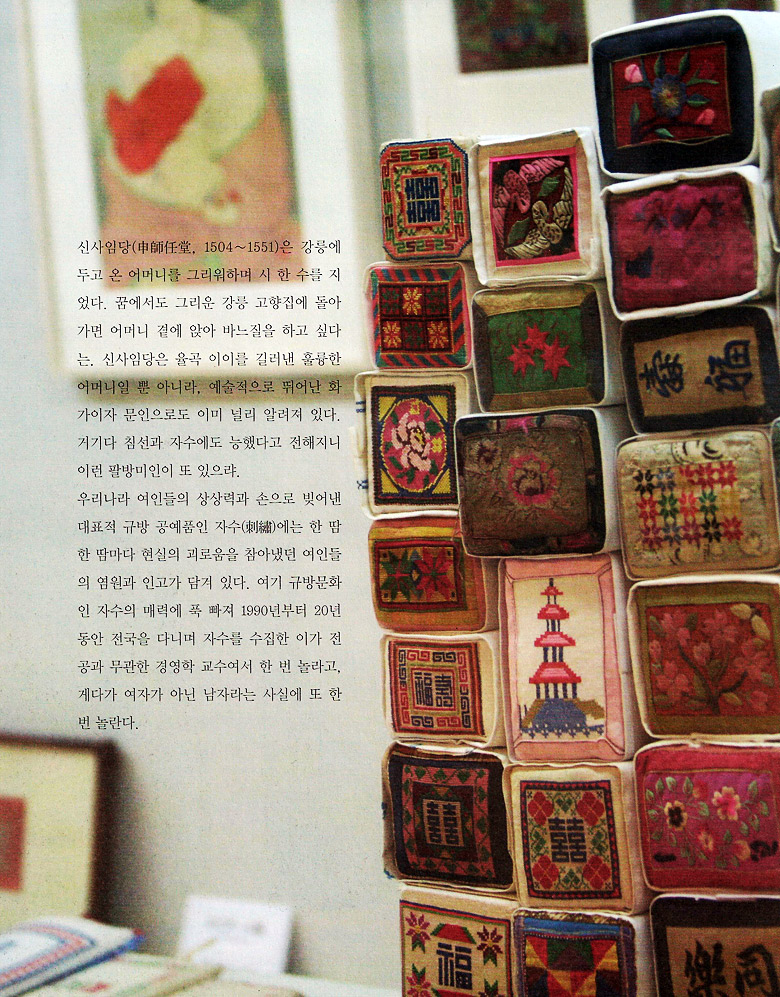 신사임당(申師任堂, 1504~1551)은 강릉에
두고 온 어머니를 그리워하며 시 한 수를 지
었다. 꿈에서도 그리운 강릉 고향집에 돌아
가면 어머니 곁에 앉아 바느질을 하고 싶다
는. 신사임당은 율곡 이이를 길러낸 훌륭한
어머니일 뿐 아니라, 예술적으로 뛰어난 화
가이자 문인으로도 이미 널리 알려져 있다.
거기다 침선과 자수에도 능했다고 전해지니
이런 팔방미인이 또 있으랴.
우리나라 여인들의 상상력과 손으로 빚어낸
대표적 규방 공예품인 자수(刺繡)에는 한 땀
한 땀마다 현실의 괴로움을 참아냈던 여인들
의 염원과 인고가 담겨 있다. 여기 규방문화
인 자수의 매력에 푹 빠져 1990년부터 20년
동안 전국을 다니며 자수를 수집한 이가 전
공과 무관한 경영학 교수여서 한 번 놀라고,
게다가 여자가 아닌 남자라는 사실에 또 한
번 놀란다.
囍
壽福
福壽
囍
囍
福
樂同